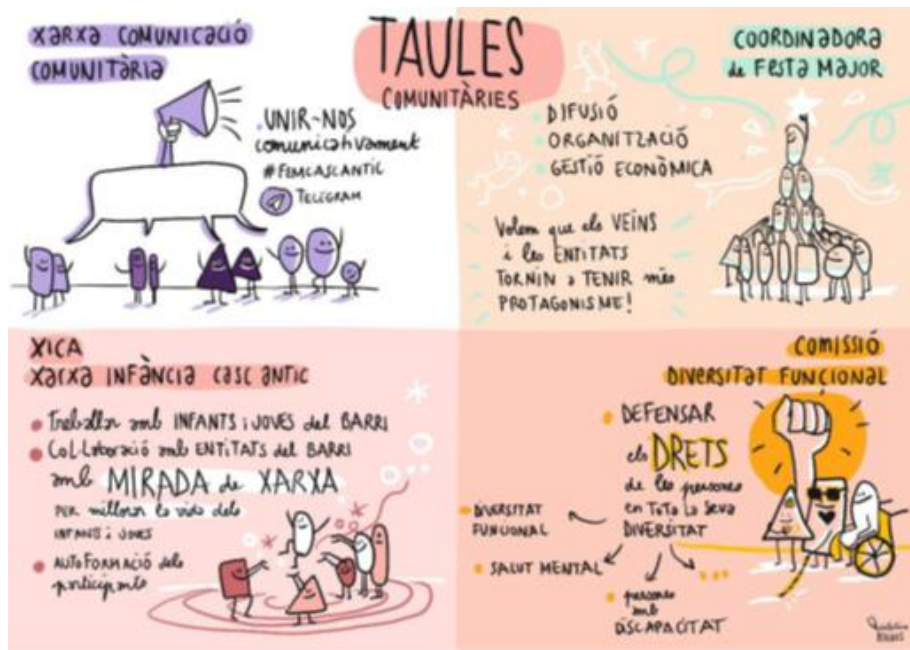 TAULES
COMUNITÀRIES
XARXA COMUNICACIÓ
COMUNITÀRIA
UNIR-NOS
comunicativament
#FEMCASCANTIC
TELEGRAM
COORDINADORA
de FESTA MAJOR
DIFUSIÓ
ORGANITZACIÓ
GESTIÓ ECONÒMICA
Volem que els VEÏNS
i les ENTITATS
TORNIN a TENIR més
PROTAGONISME!
XICA
XARXA INFÀNCIA CASC ANTIC
Treballar amb INFANTS i JOVES del BARRI
Col·laboració amb ENTITATS del BARRI
amb MIRADA de XARXA
PER millorar la vida dels
INFANTS i JOVES
AUTOFORMACIÓ dels
participants
COMISSIÓ
DIVERSITAT FUNCIONAL
DEFENSAR
els DRETS
de les persones
en TOTA la Seva
DIVERSITAT
DIVERSITAT
FUNCIONAL
SALUT MENTAL
persones
amb
DISCAPACITAT